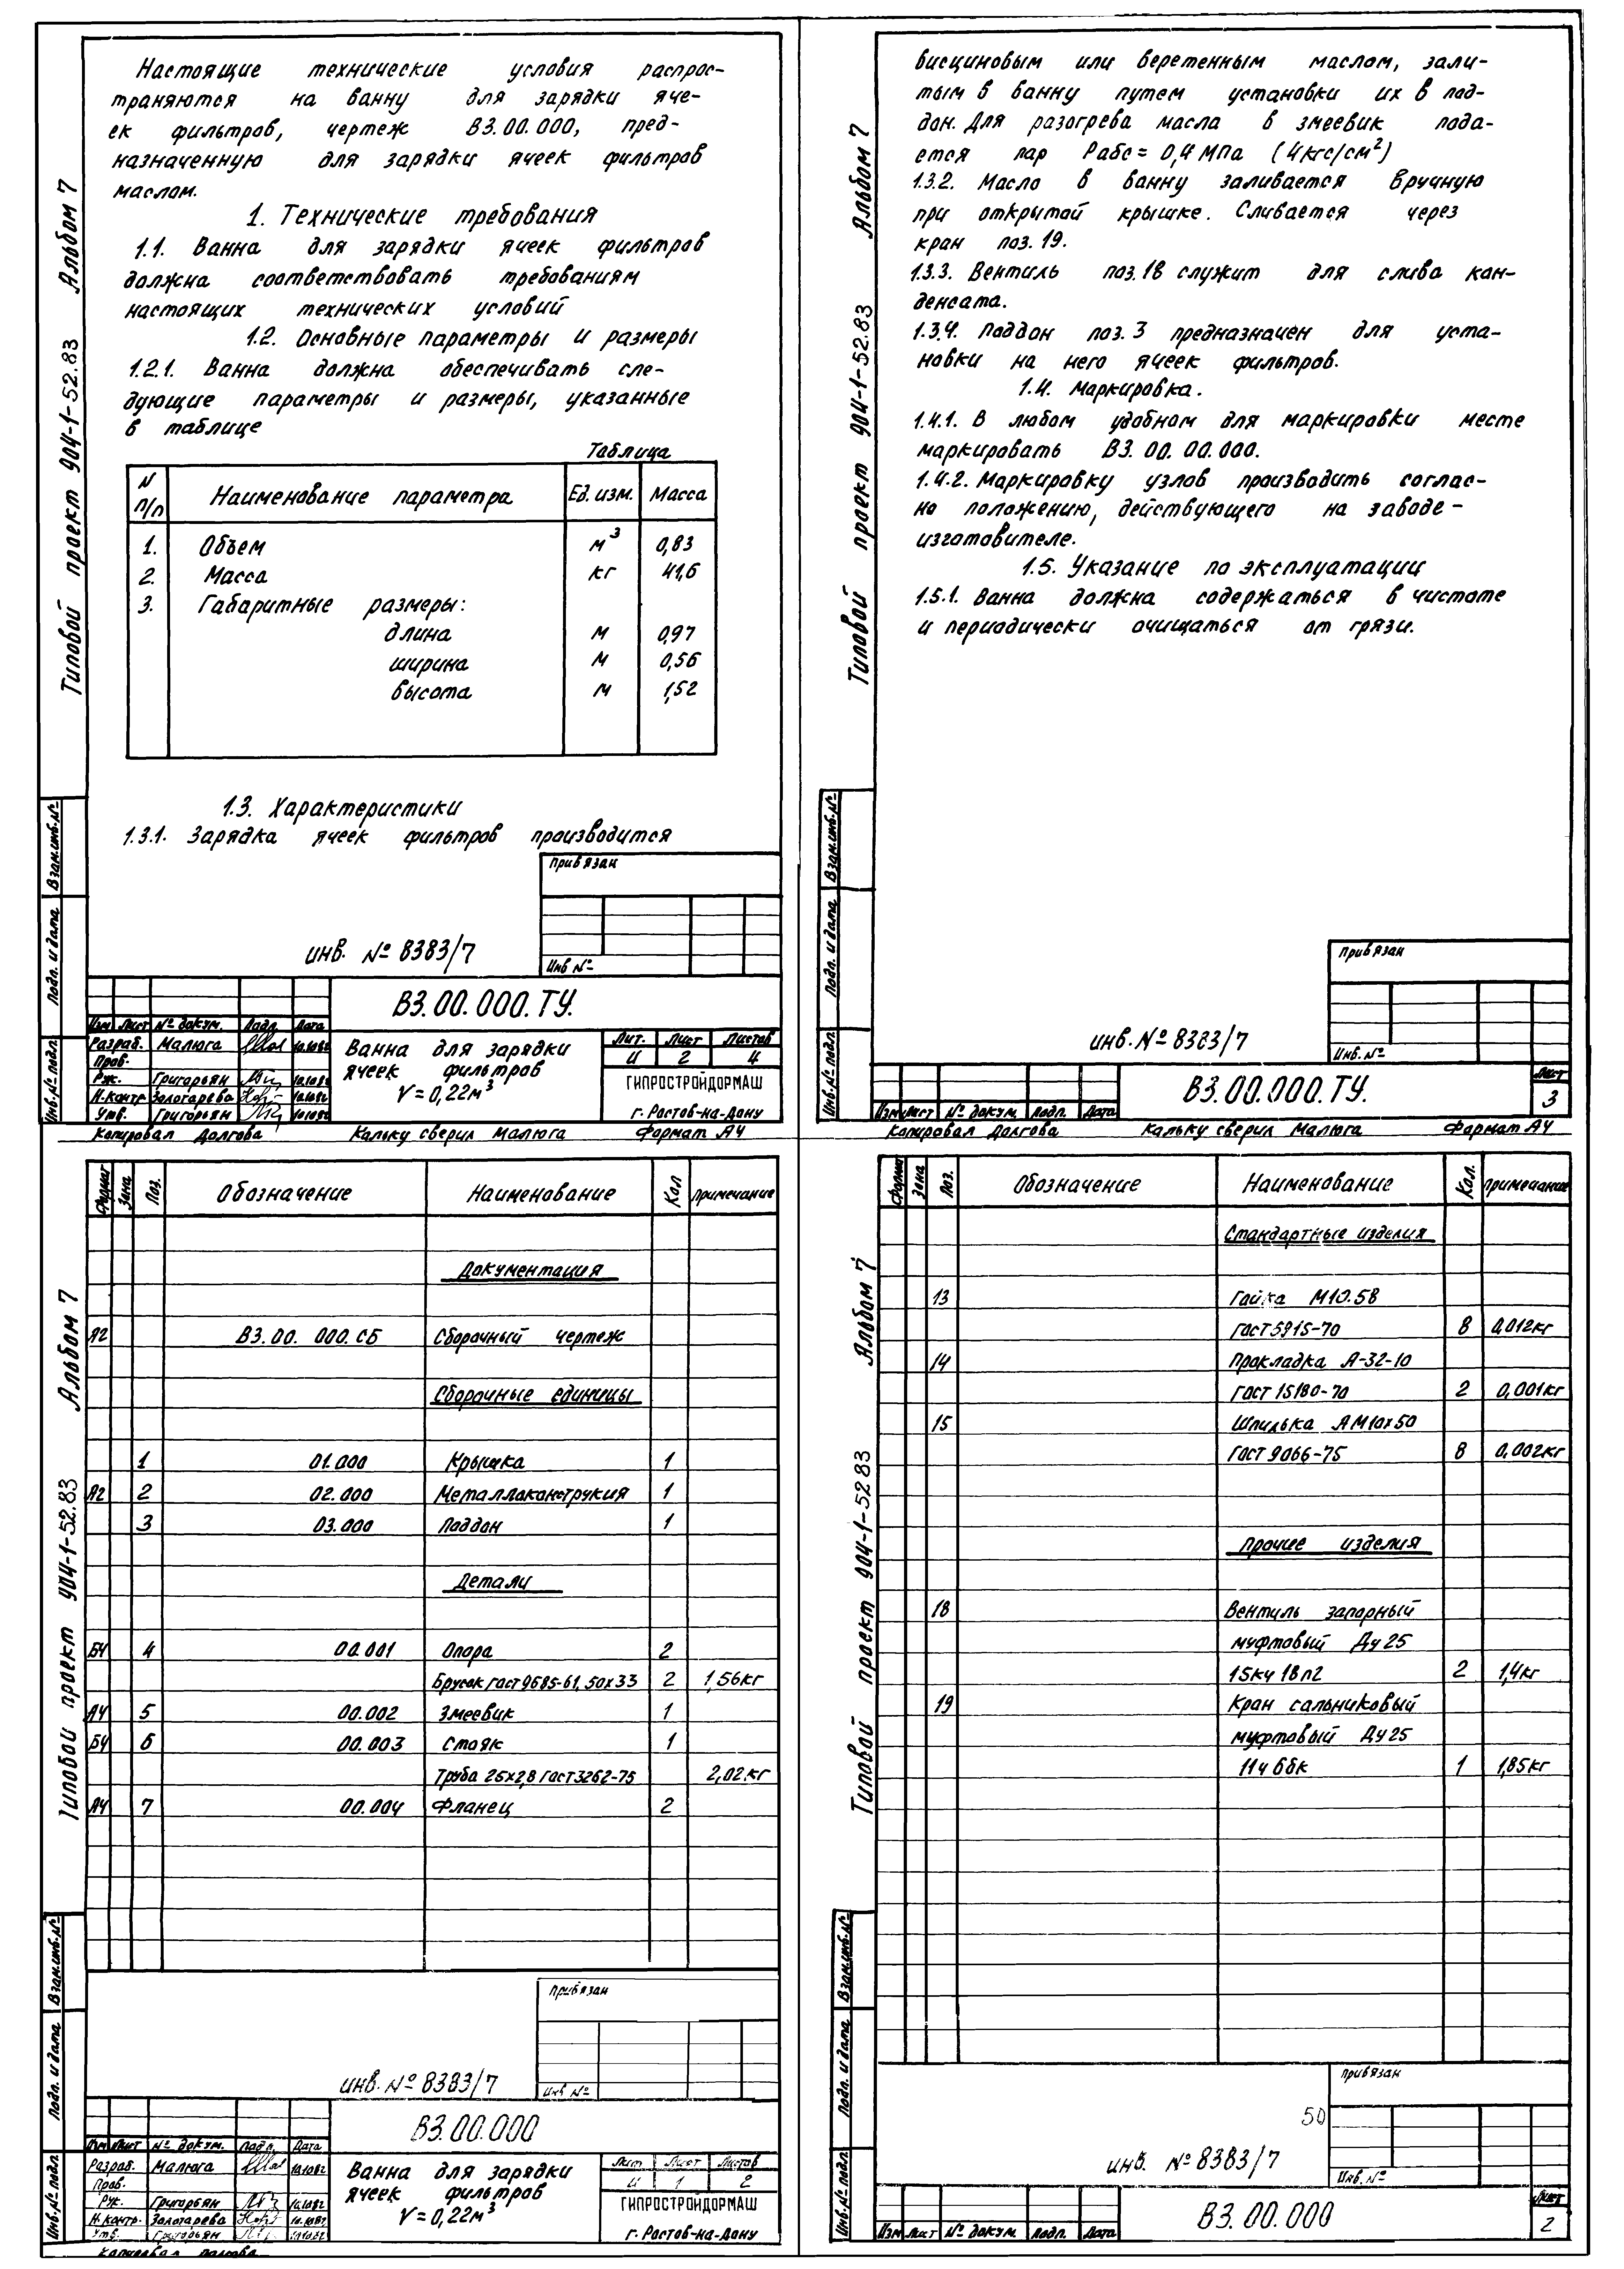 Альбом 7
Типовой проект 904-1-52.83
Настоящие технические условия распрос-
траняются на ванну для зарядки яче-
ек фильтров, чертеж В3.00.000, пред-
назначенную для зарядки ячеек фильтров
маслом.
1. Технические требования
1.1. Ванна для зарядки ячеек фильтров
должна соответствовать требованиям
настоящих технических условий
1.2. Основные параметры и размеры
1.2.1. Ванна должна обеспечивать сле-
дующие параметры и размеры, указанные
в таблице
Таблица
N п/п Наименование параметра Ед. изм. Масса
1. Объем м³ 0,83
2. Масса кг 41,6
3. Габаритные размеры:
длина м 0,97
ширина м 0,56
высота м 1,52
1.3. Характеристики
1.3.1. Зарядка ячеек фильтров производится
Привязан
Инв №
инв. № 8383/7
Взам.инв.№
Подп. и дата
Инв.№ подл.
В3.00.000.ТУ.
Изм Лист № докум. Подп. Дата
Разраб. Малюга 10.10.82
Пров.
Рук. Григорьян 10.10.82
Н.контр Золотарева 10.10.82
Утв. Григорьян 10.10.82
Ванна для зарядки
ячеек фильтров
V = 0,22м³
Лит. Лист Листов
И 2 4
ГИПРОСТРОЙДОРМАШ
г. Ростов-на-Дону
Копировал Долгова Кальку сверил Малюга Формат А4
Альбом 7
Типовой проект 904-1-52.83
висциновым или веретенным маслом, зали-
тым в ванну путем установки их в под-
дон. Для разогрева масла в змеевик пода-
ется пар Рабс = 0,4 МПа (4кгс/см²)
1.3.2. Масло в ванну заливается вручную
при открытой крышке. Сливается через
кран поз. 19.
1.3.3. Вентиль поз. 18 служит для слива кон-
денсата.
1.3.4. Поддон поз. 3 предназначен для уста-
новки на него ячеек фильтров.
1.4. Маркировка.
1.4.1. В любом удобном для маркировки месте
маркировать В3. 00. 00. 000.
1.4.2. Маркировку узлов производить соглас-
но положению, действующего на заводе -
изготовителе.
1.5. Указание по эксплуатации
1.5.1. Ванна должна содержаться в чистоте
и периодически очищаться от грязи.
Привязан
Инв. №
инв. № 8383/7
Взам.инв.№
Подп. и дата
Инв.№ подл.
Изм Лист № докум. Подп. Дата
В3.00.000.ТУ.
Лист
3
Копировал Долгова Кальку сверил Малюга Формат А4
Альбом 7
Типовой проект 904-1-52.83
Формат Зона Поз. Обозначение Наименование Кол Примечание
Документация
А2 В3.00. 000.СБ Сборочный чертеж
Сборочные единицы
1 01.000 Крышка 1
А2 2 02.000 Металлоконструкия 1
3 03.000 Поддон 1
Детали
БЧ 4 00.001 Опора 2
Брусок гост 9685-61, 50х33 2 1,56кг
А4 5 00.002 Змеевик 1
БЧ 6 00.003 Стояк 1
Труба 25х2,8 гост 3262-75 2,02.кг
А4 7 00.004 Фланец 2
Привязан
Инв №
инв. № 8383/7
Взам.инв.№
Подп. и дата
Инв.№ подл.
В3.00.000
Изм Лист № докум. Подп. Дата
Разраб. Малюга 10.10.82
Пров.
Рук. Григорьян 10.10.82
Н.контр. Золотарева 10.10.82
Утв. Григорьян 10.10.82
Ванна для зарядки
ячеек фильтров
V = 0,22м³
Лит Лист Листов
И 1 2
ГИПРОСТРОЙДОРМАШ
г. Ростов-на-Дону
Копировал Долгова
Альбом 7
Типовой проект 904-1-52 83
Формат Зона Поз. Обозначение Наименование Кол. Примечание
Стандартные изделия
13 Гайка М10.5В
гост 5915-70 8 0,012кг
14 Прокладка А-32-10
гост 15180-70 2 0,001кг
15 Шпилька АМ10х50
гост 9066-75 8 0,002кг
Прочие изделия
18 Вентиль запорный
муфтовый Ду 25
15кч 18п2 2 1,4кг
19 Кран сальниковый
муфтовый Ду 25
11ч 6бк 1 1,85кг
Привязан
50
Инв. №
инв. № 8383/7
Взам.инв.№
Подп. и дата
Инв.№ подл.
Изм Лист № докум. Подп. Дата
В3.00.000
Лист
2